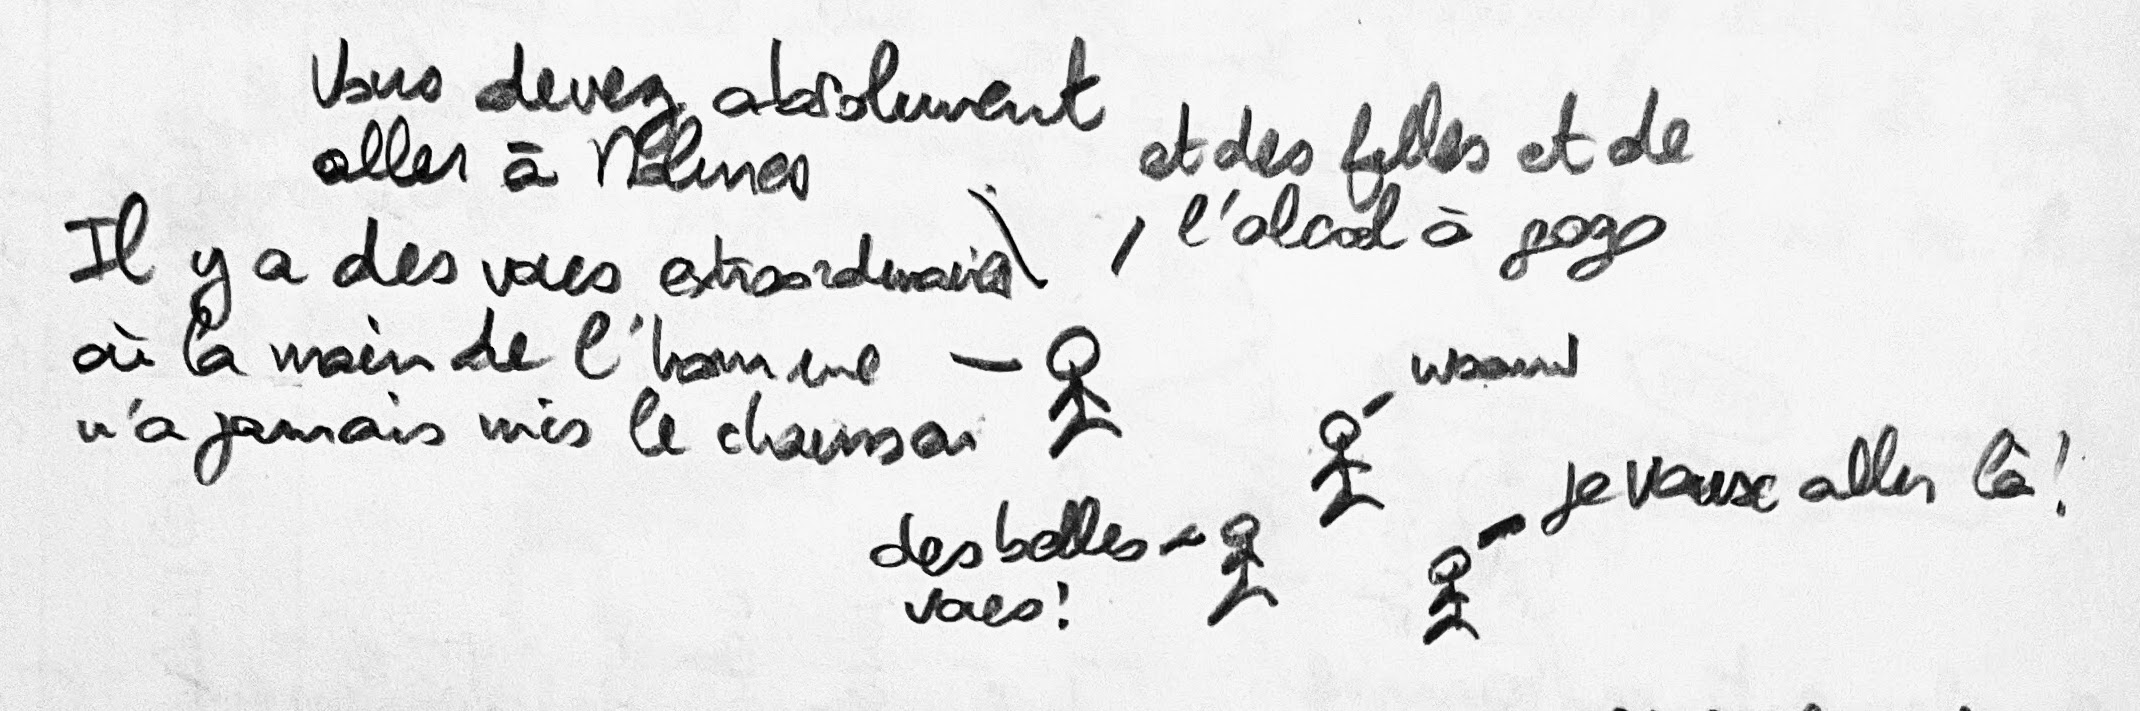 Vous devez absolument
aller à
Il y a des voies extraordinaires
où la main de l'homme
n'a jamais mis le chausson
et des filles et de
l'alcool à gogo
waaw
je veux aller là !
des belles
voies !